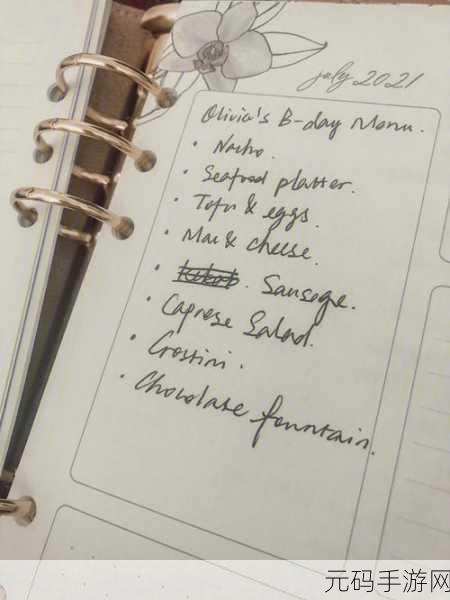 july 2021
Olivia's B-day Menu.
• Nacho.
• Seafood platter.
• Tofu & eggs.
• Mac & cheese.
• Sausage.
• Caprese Salad.
• Crostini.
• Chocolate fountain.
元码手游网